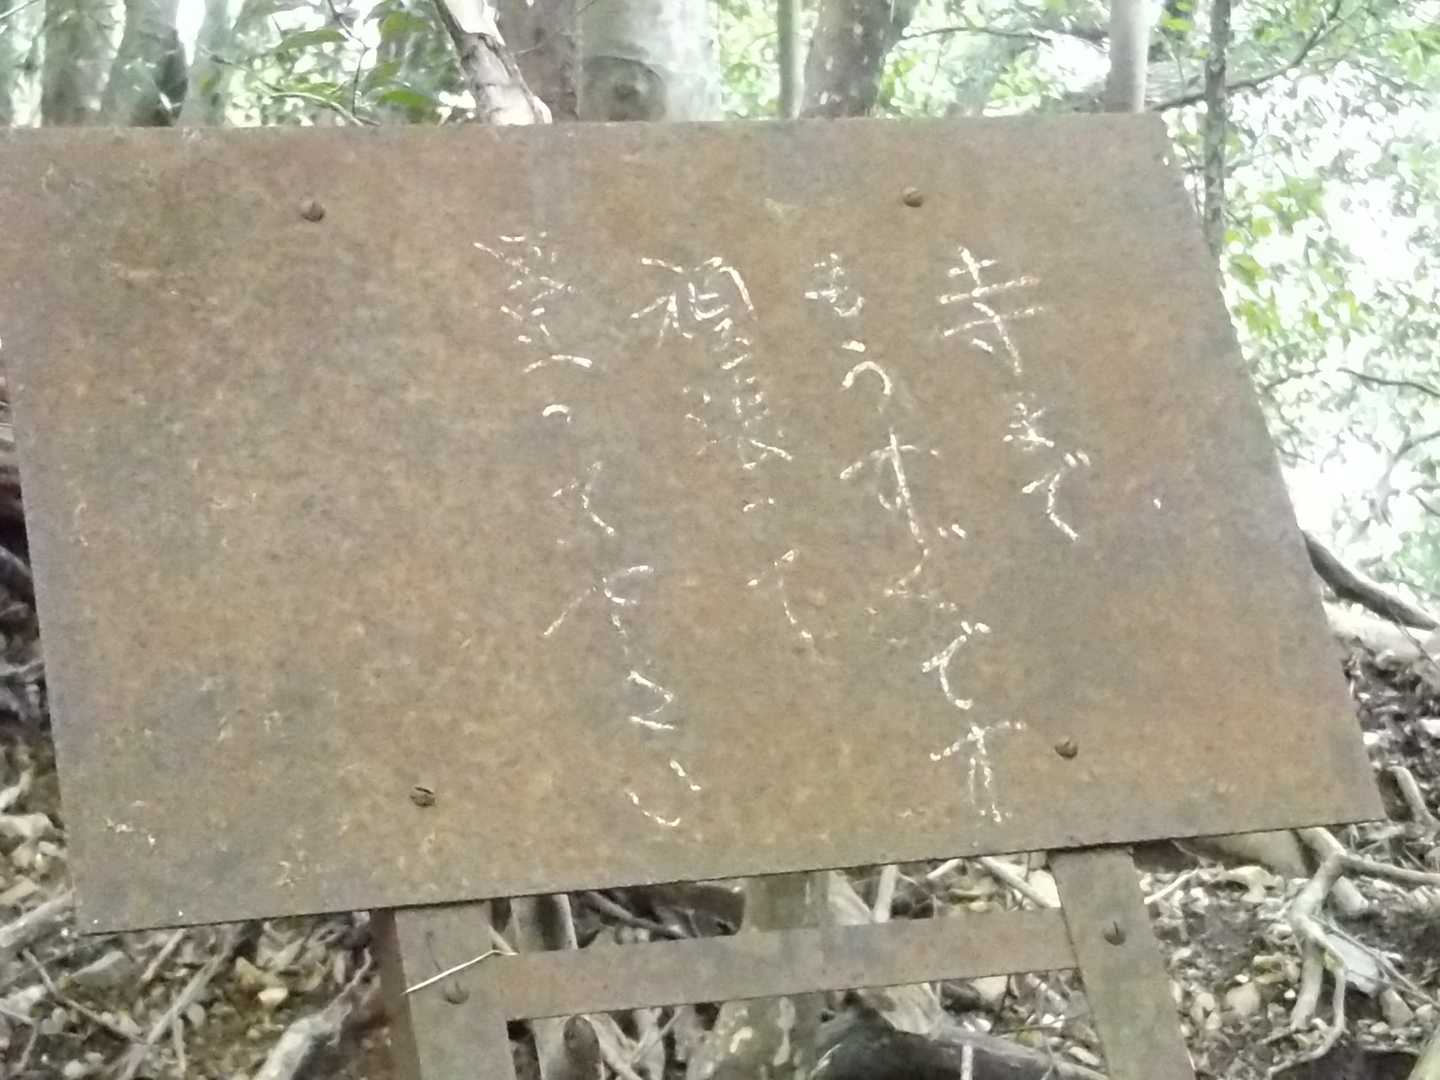 寺まで
もうすぐです
頑張って
登って下さい